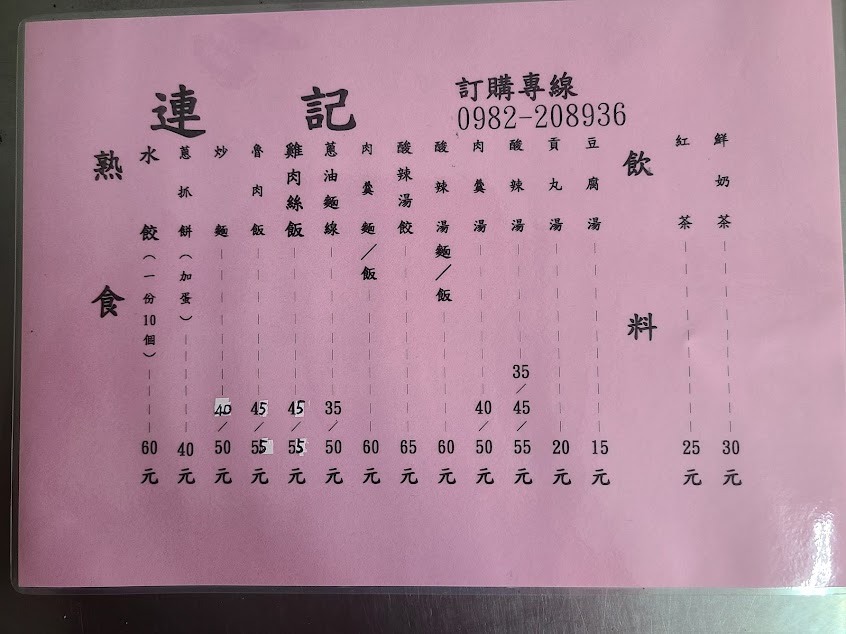 連記
訂購專線
0982-208936
熟食
水餃(一份10個)60元
蔥抓餅(加蛋)40元
炒麵40/50元
魯肉飯45/55元
雞肉絲飯45/55元
蔥油麵線35/50元
肉羹麵/飯60元
酸辣湯餃65元
酸辣湯麵/飯60元
肉羹湯40/50元
酸辣湯35/45/55元
貢丸湯20元
豆腐湯15元
飲料
紅茶25元
鮮奶茶30元